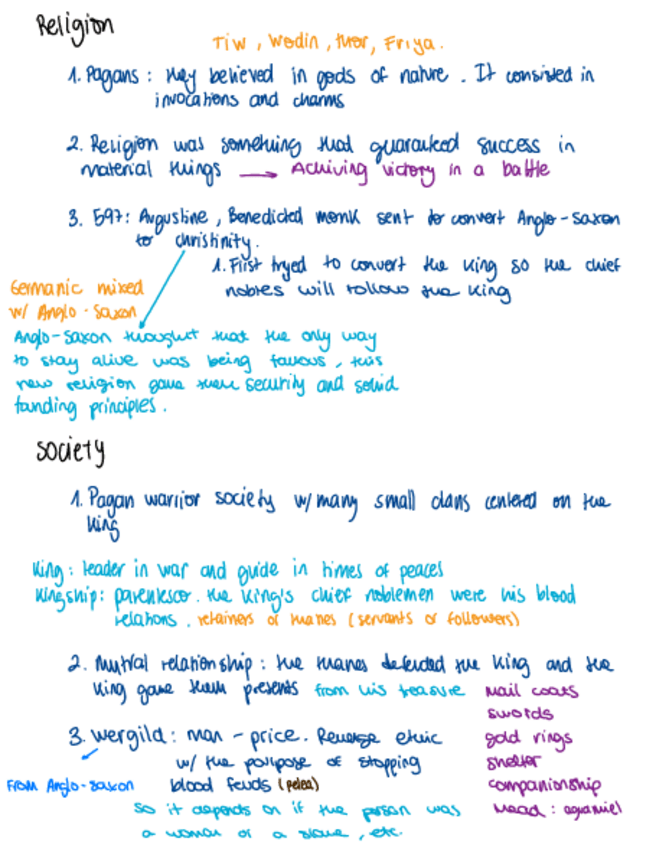 Religion
Tiw, Wodin, thor, Friya.
1. Pagans: they believed in gods of nature. It consisted in
invocations and charms
2. Religion was something that guaranteed success in
material things → Achiving victory in a battle
3. 597: Augustine, Benedicted monk sent to convert Anglo-saxon
to christinity.
1. First tryed to convert the King so the chief
nobles will follow the King
Germanic mixed
w/ Anglo-saxon
Anglo-saxon thought that the only way
to stay alive was being famous, this
new religion gave them security and solid
funding principles.
Society
1. Pagan warrior society w/ many small clans centered on the
King
King: leader in war and guide in times of peaces
Kingship: parentesco. the King's chief noblemen were his blood
relations. retainers or thanes (servants or followers)
2. Mutual relationship: the thanes defended the King and the
King gave them presents from his treasure
mail coats
swords
gold rings
shelter
companionship
Mead: aguamiel
3. wergild: man-price. Revenge ethic
w/ the purpose of stopping
blood feuds (pelea)
From Anglo-saxon
so it depends on if the person was
a woman or a slave, etc.